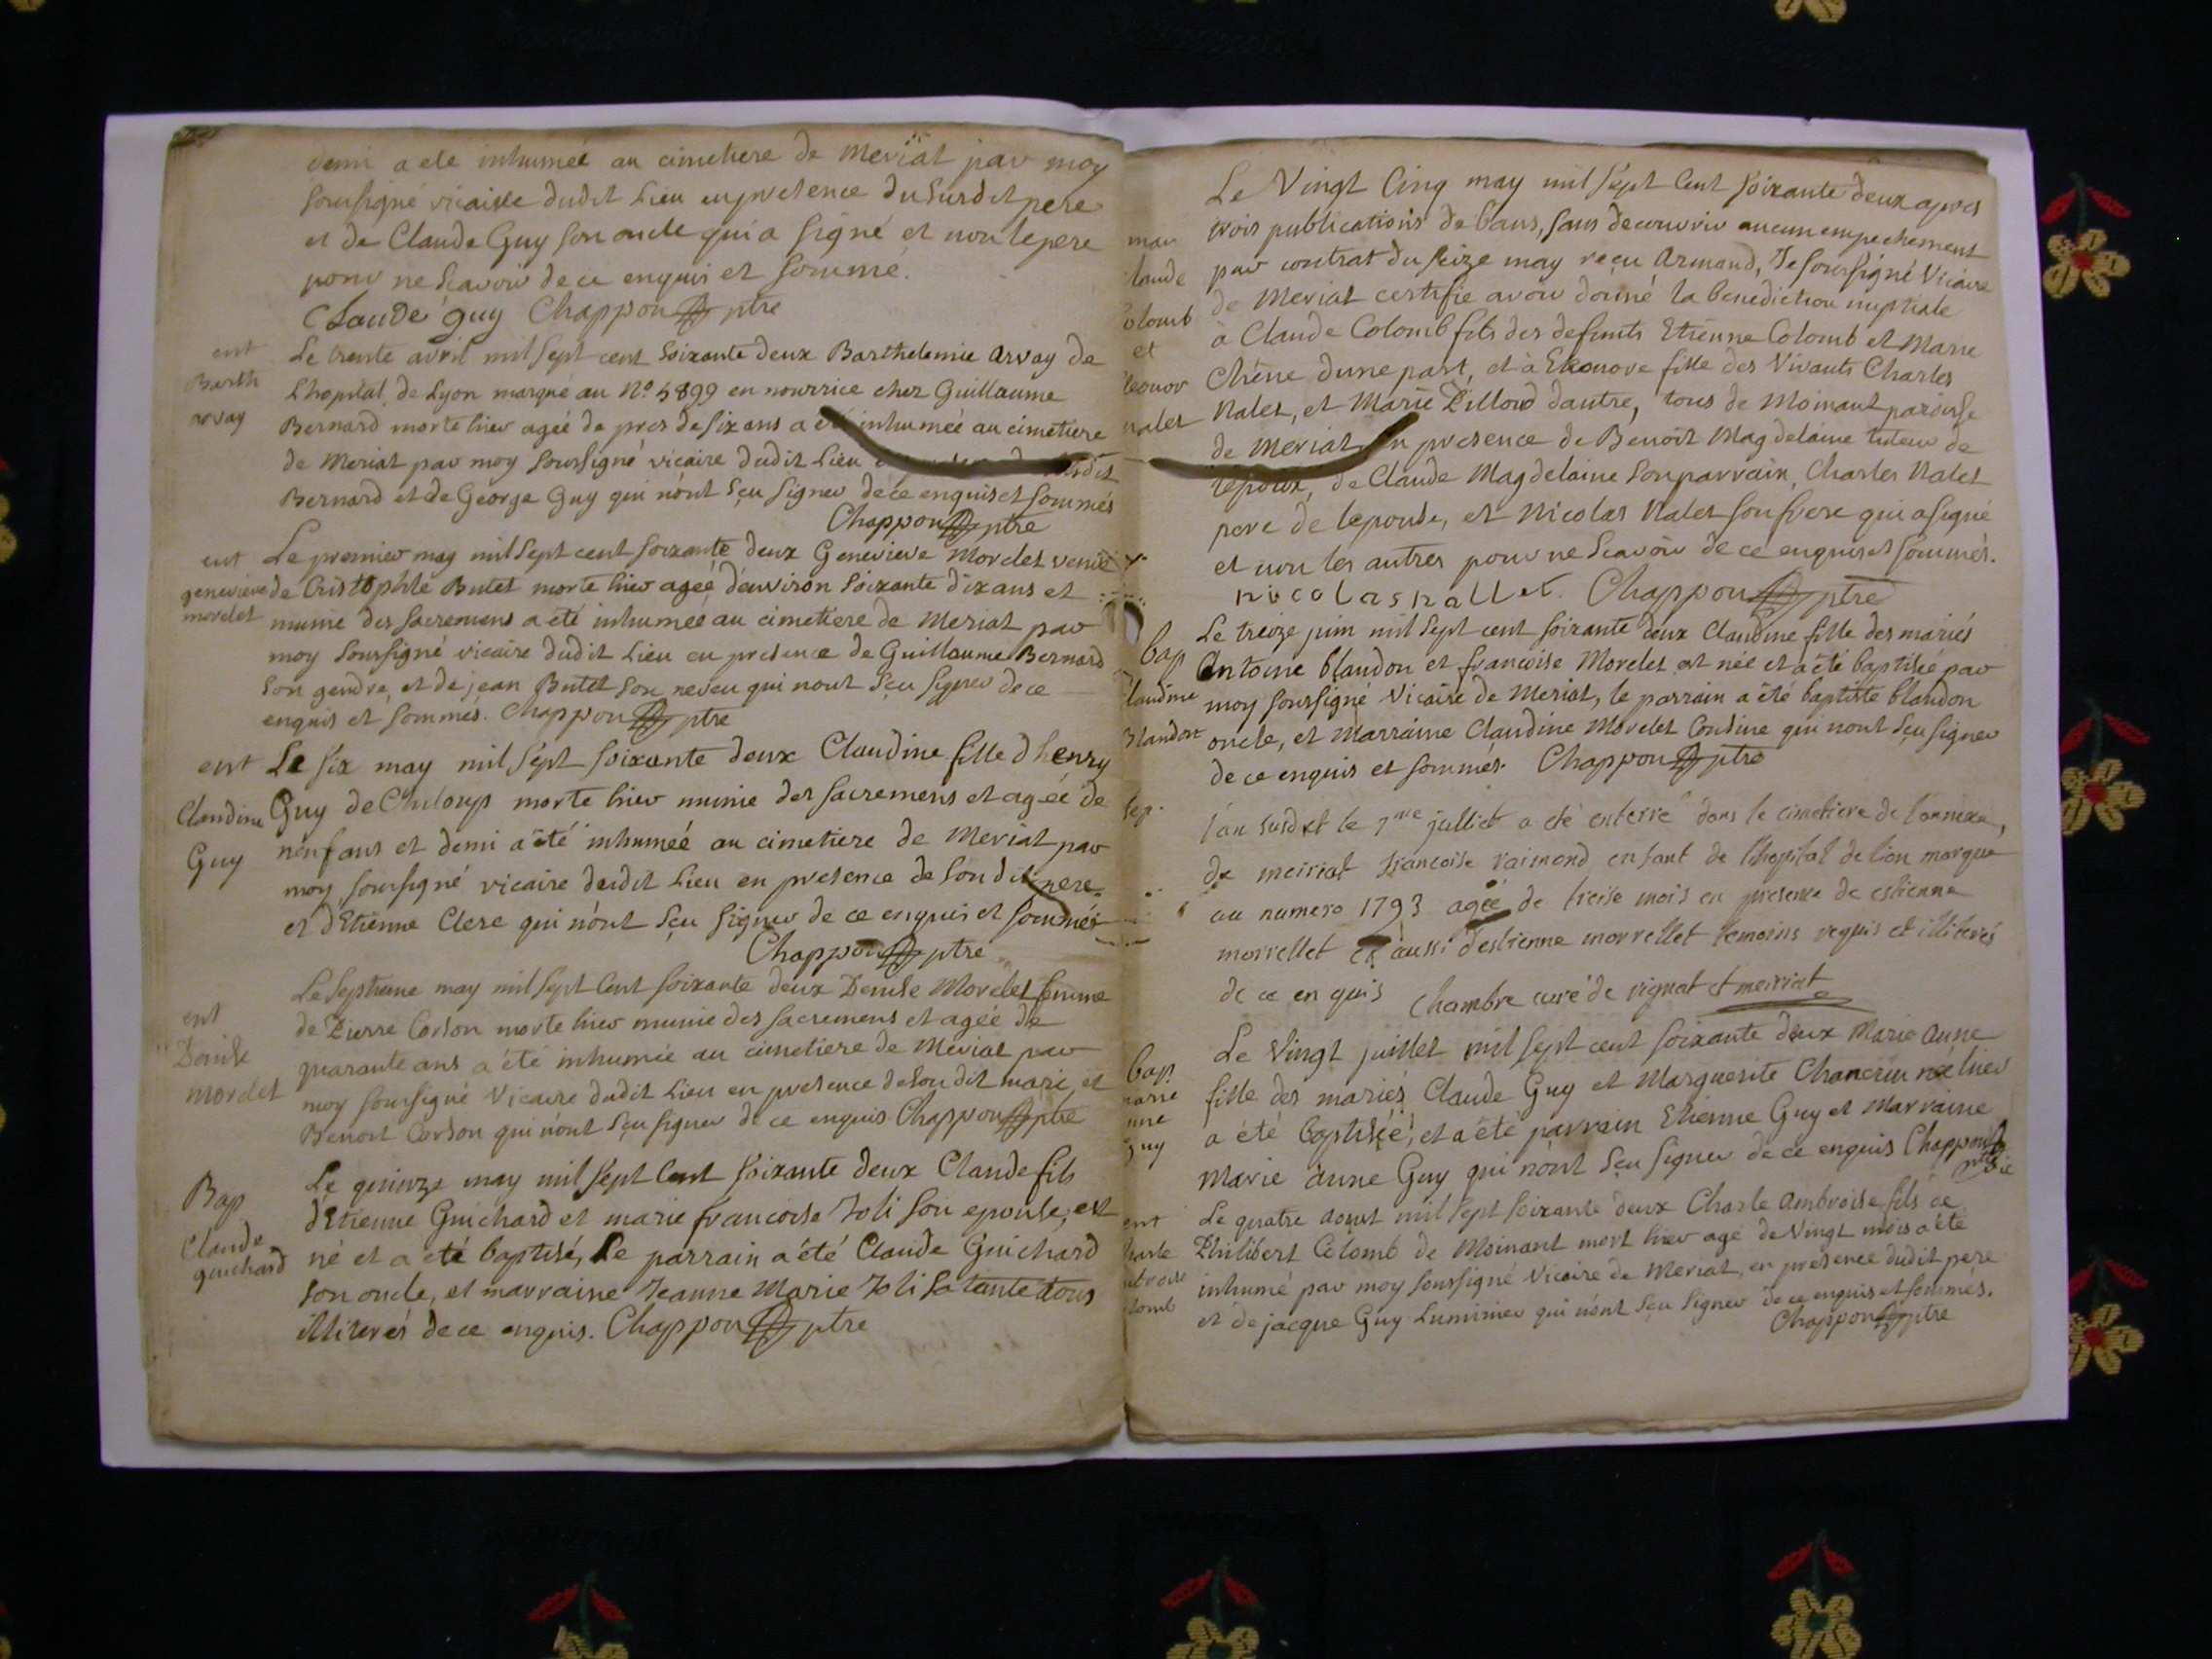 demi a ete inhumeé au cimetiere de Meriat par moy
soussigné vicaire dudit Lieu en presence du susdit pere
et de Claude Guy son oncle qui a signé et non le pere
pour ne scavoir de ce enquis et sommé.
Claude guy Chappon ptre
ent
Barth
arvay
Le trente avril mil sept cent soixante deux Barthelemie Arvay de
Lhopital de Lyon marqué au No 5899 en nourrice chez Guillaume
Bernard morte hier ageé de pres de six ans a été inhumeé au cimetiere
de Meriat par moy soussigné vicaire dudit Lieu
Bernard et de George Guy qui n'ont sçu signer de ce enquis et sommés
Chappon ptre
ent
genevieve
morelet
Le premier may mil sept cent soixante deux Genevieve Morelet veuve
de Cristophle Butet morte hier ageé d'environ soixante dix ans et
munie des sacremens a été inhumeé au cimetiere de Meriat par
moy soussigné vicaire dudit Lieu en presence de Guillaume Bernard
son gendre, et de jean Butet son neveu qui nont sçu signer de ce
enquis et sommés. Chappon ptre
ent
Claudine
Guy
Le six may mil sept soixante deux Claudine fille dhenry
Guy de Chiloup morte hier munie des sacremens et ageé de
neuf ans et demi a été inhumeé au cimetiere de Meriat par
moy soussigné vicaire dudit Lieu en presence de son dit pere
et d'Etienne Clerc qui n'ont sçu signer de ce enquis et sommés
Chappon ptre
ent
Denise
morelet
Le septieme may mil sept cent soixante deux Denise Morelet femme
de Pierre Corson morte hier munie des sacremens et ageé de
quarante ans a été inhumée au cimetiere de Meriat par
moy soussigné Vicaire dudit Lieu en presence de son dit mari, et
Benoit Corson qui n'ont sçu signer de ce enquis Chappon ptre
Bap
Claude
guichard
Le quinze may mil sept cent soixante deux Claude fils
d'Etienne Guichard et marie francoise Joli son epouse, est
né et a été baptisé, Le parrain a été Claude Guichard
son oncle, et marraine Jeanne Marie Joli sa tante tous
illiterés de ce enquis. Chappon ptre
mar
laude
olomb
et
leonor
nalet
Le Vingt Cinq may mil sept cent soixante deux apres
trois publications de bans, sans decouvrir aucun empechement
par contrat du seize may reçu Armand, Je soussigné Vicaire
de Meriat certifie avoir donné la benediction nuptiale
à Claude Colomb fils des defunts Etienne Colomb et Marie
Chêne d'une part, et à Eleonore fille des Vivants Charles
Nalet, et Marie Pilloud dautre, tous de Moinant paroisse
de Meriat en presence de Benoit Magdelaine tuteur de
lepoux, de Claude Magdelaine son parrain, Charles Nalet
pere de lepouse, et Nicolas Nalet son frere qui a signé
et non les autres pour ne scavoir de ce enquis et sommés.
nicolas nallet. Chappon ptre
bap
laudine
Blandon
Le treize juin mil sept cent soixante deux Claudine fille des mariés
Antoine blandon et francoise Morelet est née et a été baptisée par
moy soussigné Vicaire de Meriat, le parrain a été baptiste blandon
oncle, et Marraine Claudine Morelet Cousine qui nont sçu signer
de ce enquis et sommés. Chappon ptre
sep.
l'an susdit le 7me julliet a eté enterré dans le cimetiere de l'annexe,
de meiriat francoise raimond enfant de l'hopital de lion marque
au numero 1793 ageé de treise mois en presence de estienne
morrellet et aussi d'estienne morrellet temoins requis et illiterés
de ce enquis Chambre curé de rignat et meiriat
bap
marie
nne
guy
Le Vingt juillet mil sept cent soixante deux Marie Anne
fille des mariés Claude Guy et Marguerite Chanerin née hier
a été baptisée, et a été parrain Etienne Guy et Marraine
Marie Anne Guy qui n'ont sçu signer de ce enquis Chappon
ptre
ent
harle
mbroise
lomb
Le quatre aoust mil sept soixante deux Charle Ambroise fils de
Philibert Colomb de Moinant mort hier agé de Vingt mois a été
inhumé par moy soussigné Vicaire de Meriat, en presence dudit pere
et de jacque Guy Luminier qui n'ont sçu signer de ce enquis et sommés.
Chappon ptre